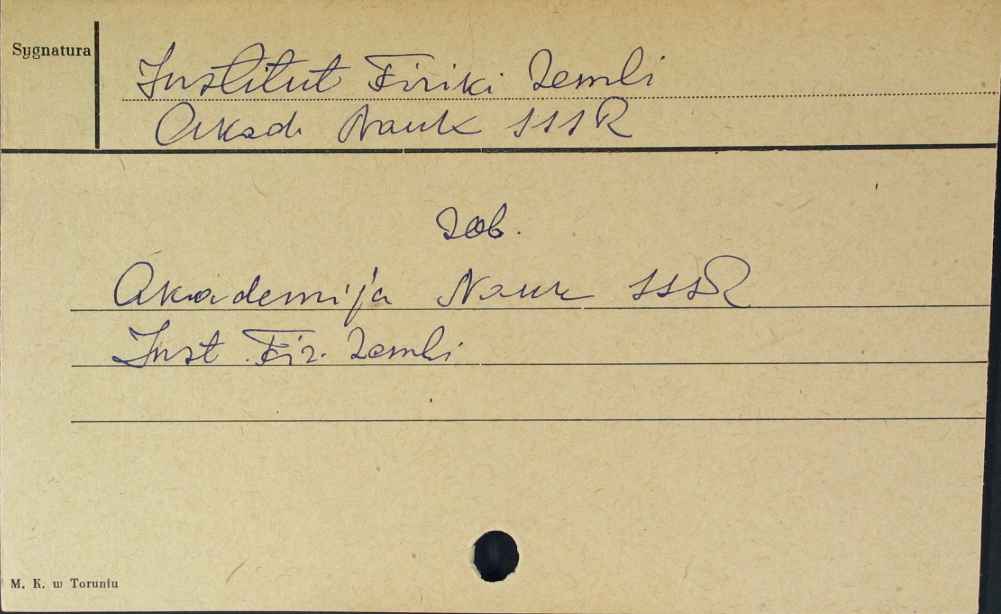 Sygnatura
Institut Fiziki Zemli
Akad. Nauk SSSR
zob.
Akademija Nauk SSSR
Inst. Fiz. Zemli
M. K. w Toruniu